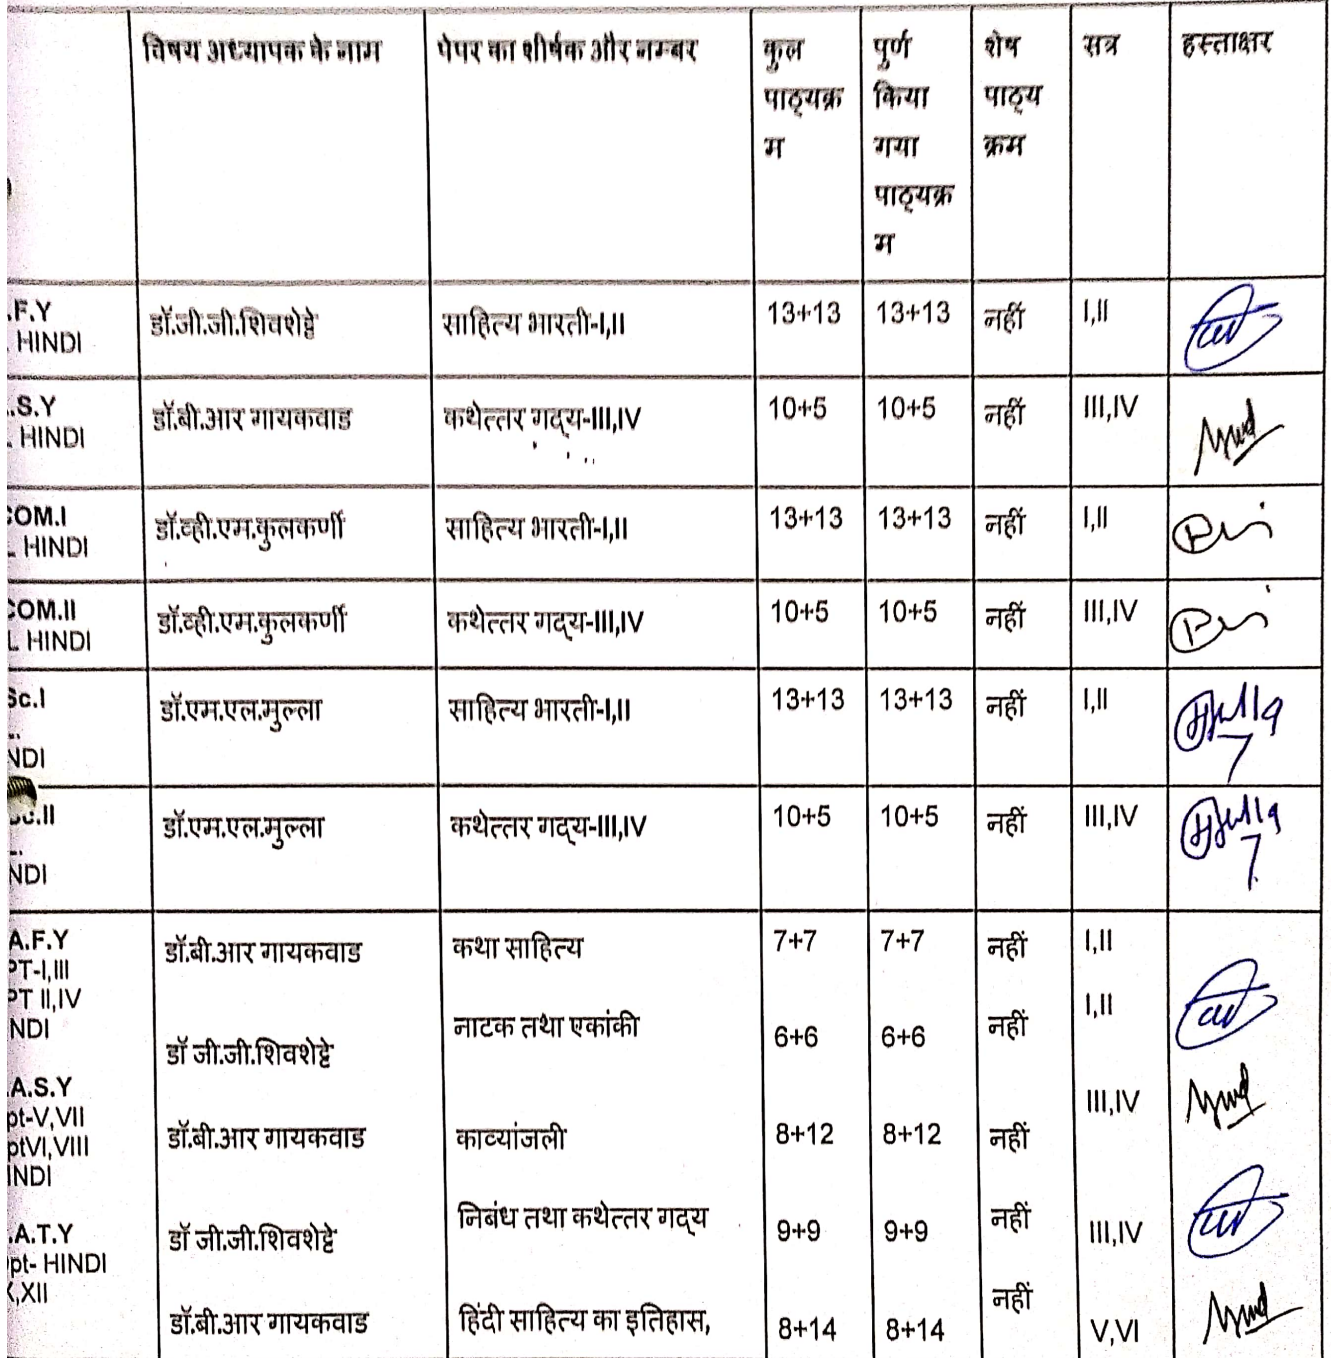 विषय अध्यापक के नाम पेपर का शीर्षक और नम्बर कुल पाठ्यक्रम पुर्ण किया गया पाठ्यक्रम शेष पाठ्य क्रम सत्र हस्ताक्षर
.F.Y
HINDI डॉ.जी.जी.शिवशेट्टे साहित्य भारती-I,II 13+13 13+13 नहीं I,II
.S.Y
. HINDI डॉ.बी.आर गायकवाड कथेत्तर गद्य-III,IV 10+5 10+5 नहीं III,IV
COM.I
L HINDI डॉ.व्ही.एम.कुलकर्णी साहित्य भारती-I,II 13+13 13+13 नहीं I,II
COM.II
L HINDI डॉ.व्ही.एम.कुलकर्णी कथेत्तर गद्य-III,IV 10+5 10+5 नहीं III,IV
Sc.I
NDI डॉ.एम.एल.मुल्ला साहित्य भारती-I,II 13+13 13+13 नहीं I,II
c.II
NDI डॉ.एम.एल.मुल्ला कथेत्तर गद्य-III,IV 10+5 10+5 नहीं III,IV
A.F.Y
PT-I,III
PT II,IV
NDI
डॉ.बी.आर गायकवाड कथा साहित्य 7+7 7+7 नहीं I,II
डॉ जी.जी.शिवशेट्टे नाटक तथा एकांकी 6+6 6+6 नहीं I,II
A.S.Y
pt-V,VII
ptVI,VIII
INDI
डॉ.बी.आर गायकवाड काव्यांजली 8+12 8+12 नहीं III,IV
डॉ जी.जी.शिवशेट्टे निबंध तथा कथेत्तर गद्य 9+9 9+9 नहीं III,IV
.A.T.Y
pt- HINDI
X,XII
डॉ.बी.आर गायकवाड हिंदी साहित्य का इतिहास, 8+14 8+14 नहीं V,VI